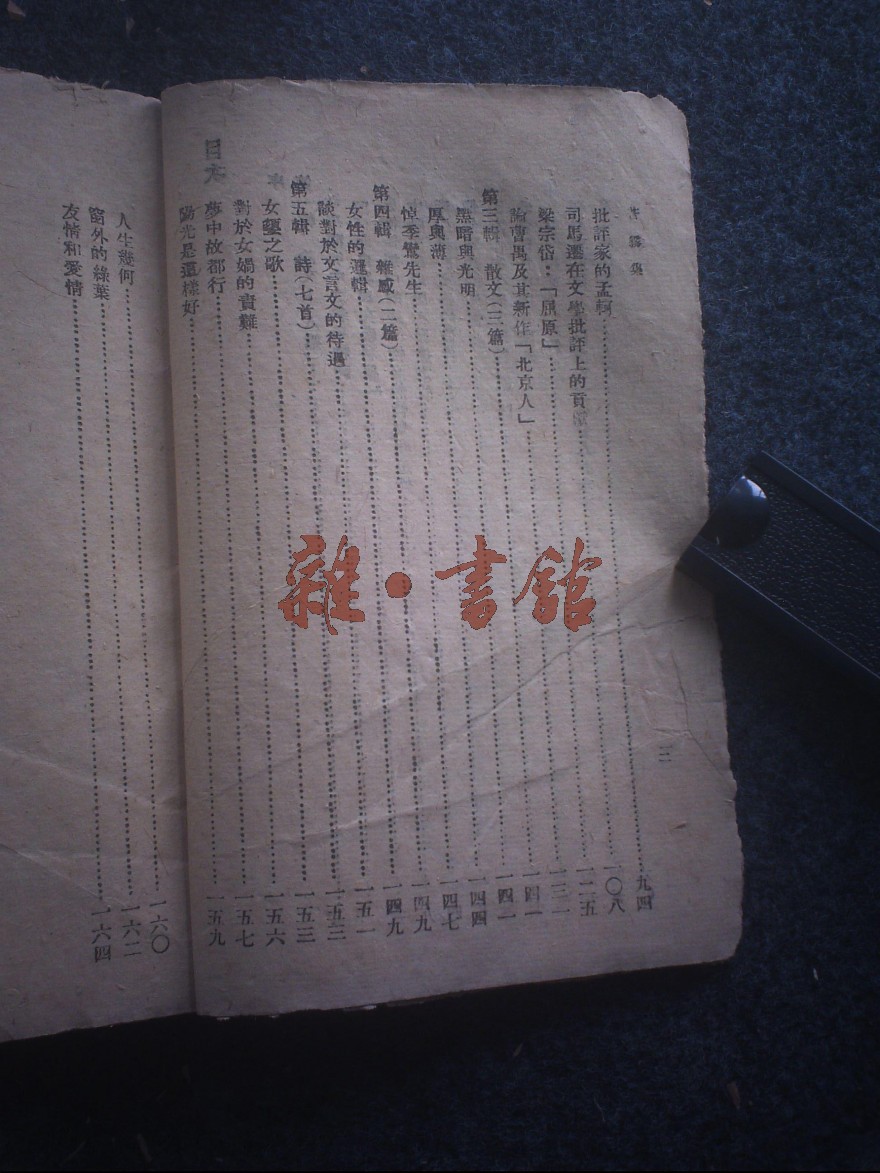 批評家的孟軻九四
司馬遷在文學批評上的貢獻一〇八
梁宗岱:「屈原」一二五
論曹禺及其新作「北京人」一三一
第三輯 散文(三篇)一四一
黑暗與光明一四一
厚與薄一四四
悼季鸞先生一四七
第四輯 雜感(二篇)一四九
女性的邏輯一四九
談對於文言文的待遇一五一
第五輯 詩(七首)一五三
女嬰之歌一五三
對於女媧的責難一五六
夢中故都行一五七
陽光是這樣好一五九
二
人生幾何一六〇
窗外的綠葉一六二
友情和愛情一六四
雜·書館